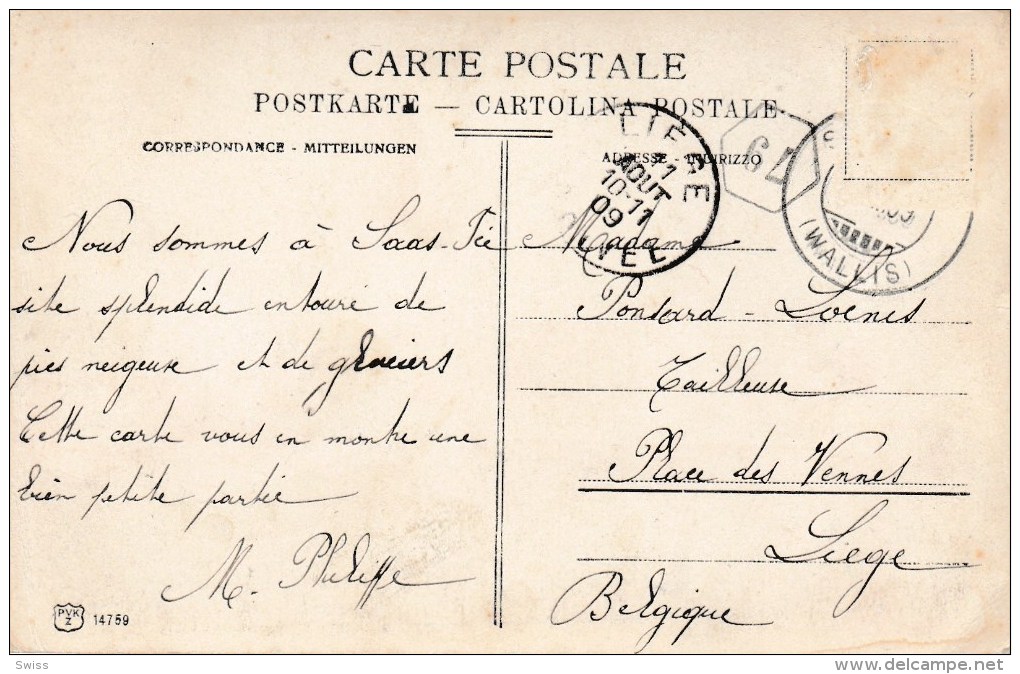 CARTE POSTALE
POSTKARTE — CARTOLINA POSTALE
CORRESPONDANCE - MITTEILUNGEN
ADRESSE - INDIRIZZO
LIEGE
11
AOUT
10-11
09
79
(WALLIS)
Nous sommes à Saas-Fée
site splendide entouré de
pics neigeuse et de glaciers
Cette carte vous en montre une
bien petite partie
M. Philippe
Madame
Ponsard - Loenis
Tailleuse
Place des Vennes
Liège
Belgique
PVK
Z
14759
Swiss
http://swiss.delcampe.net